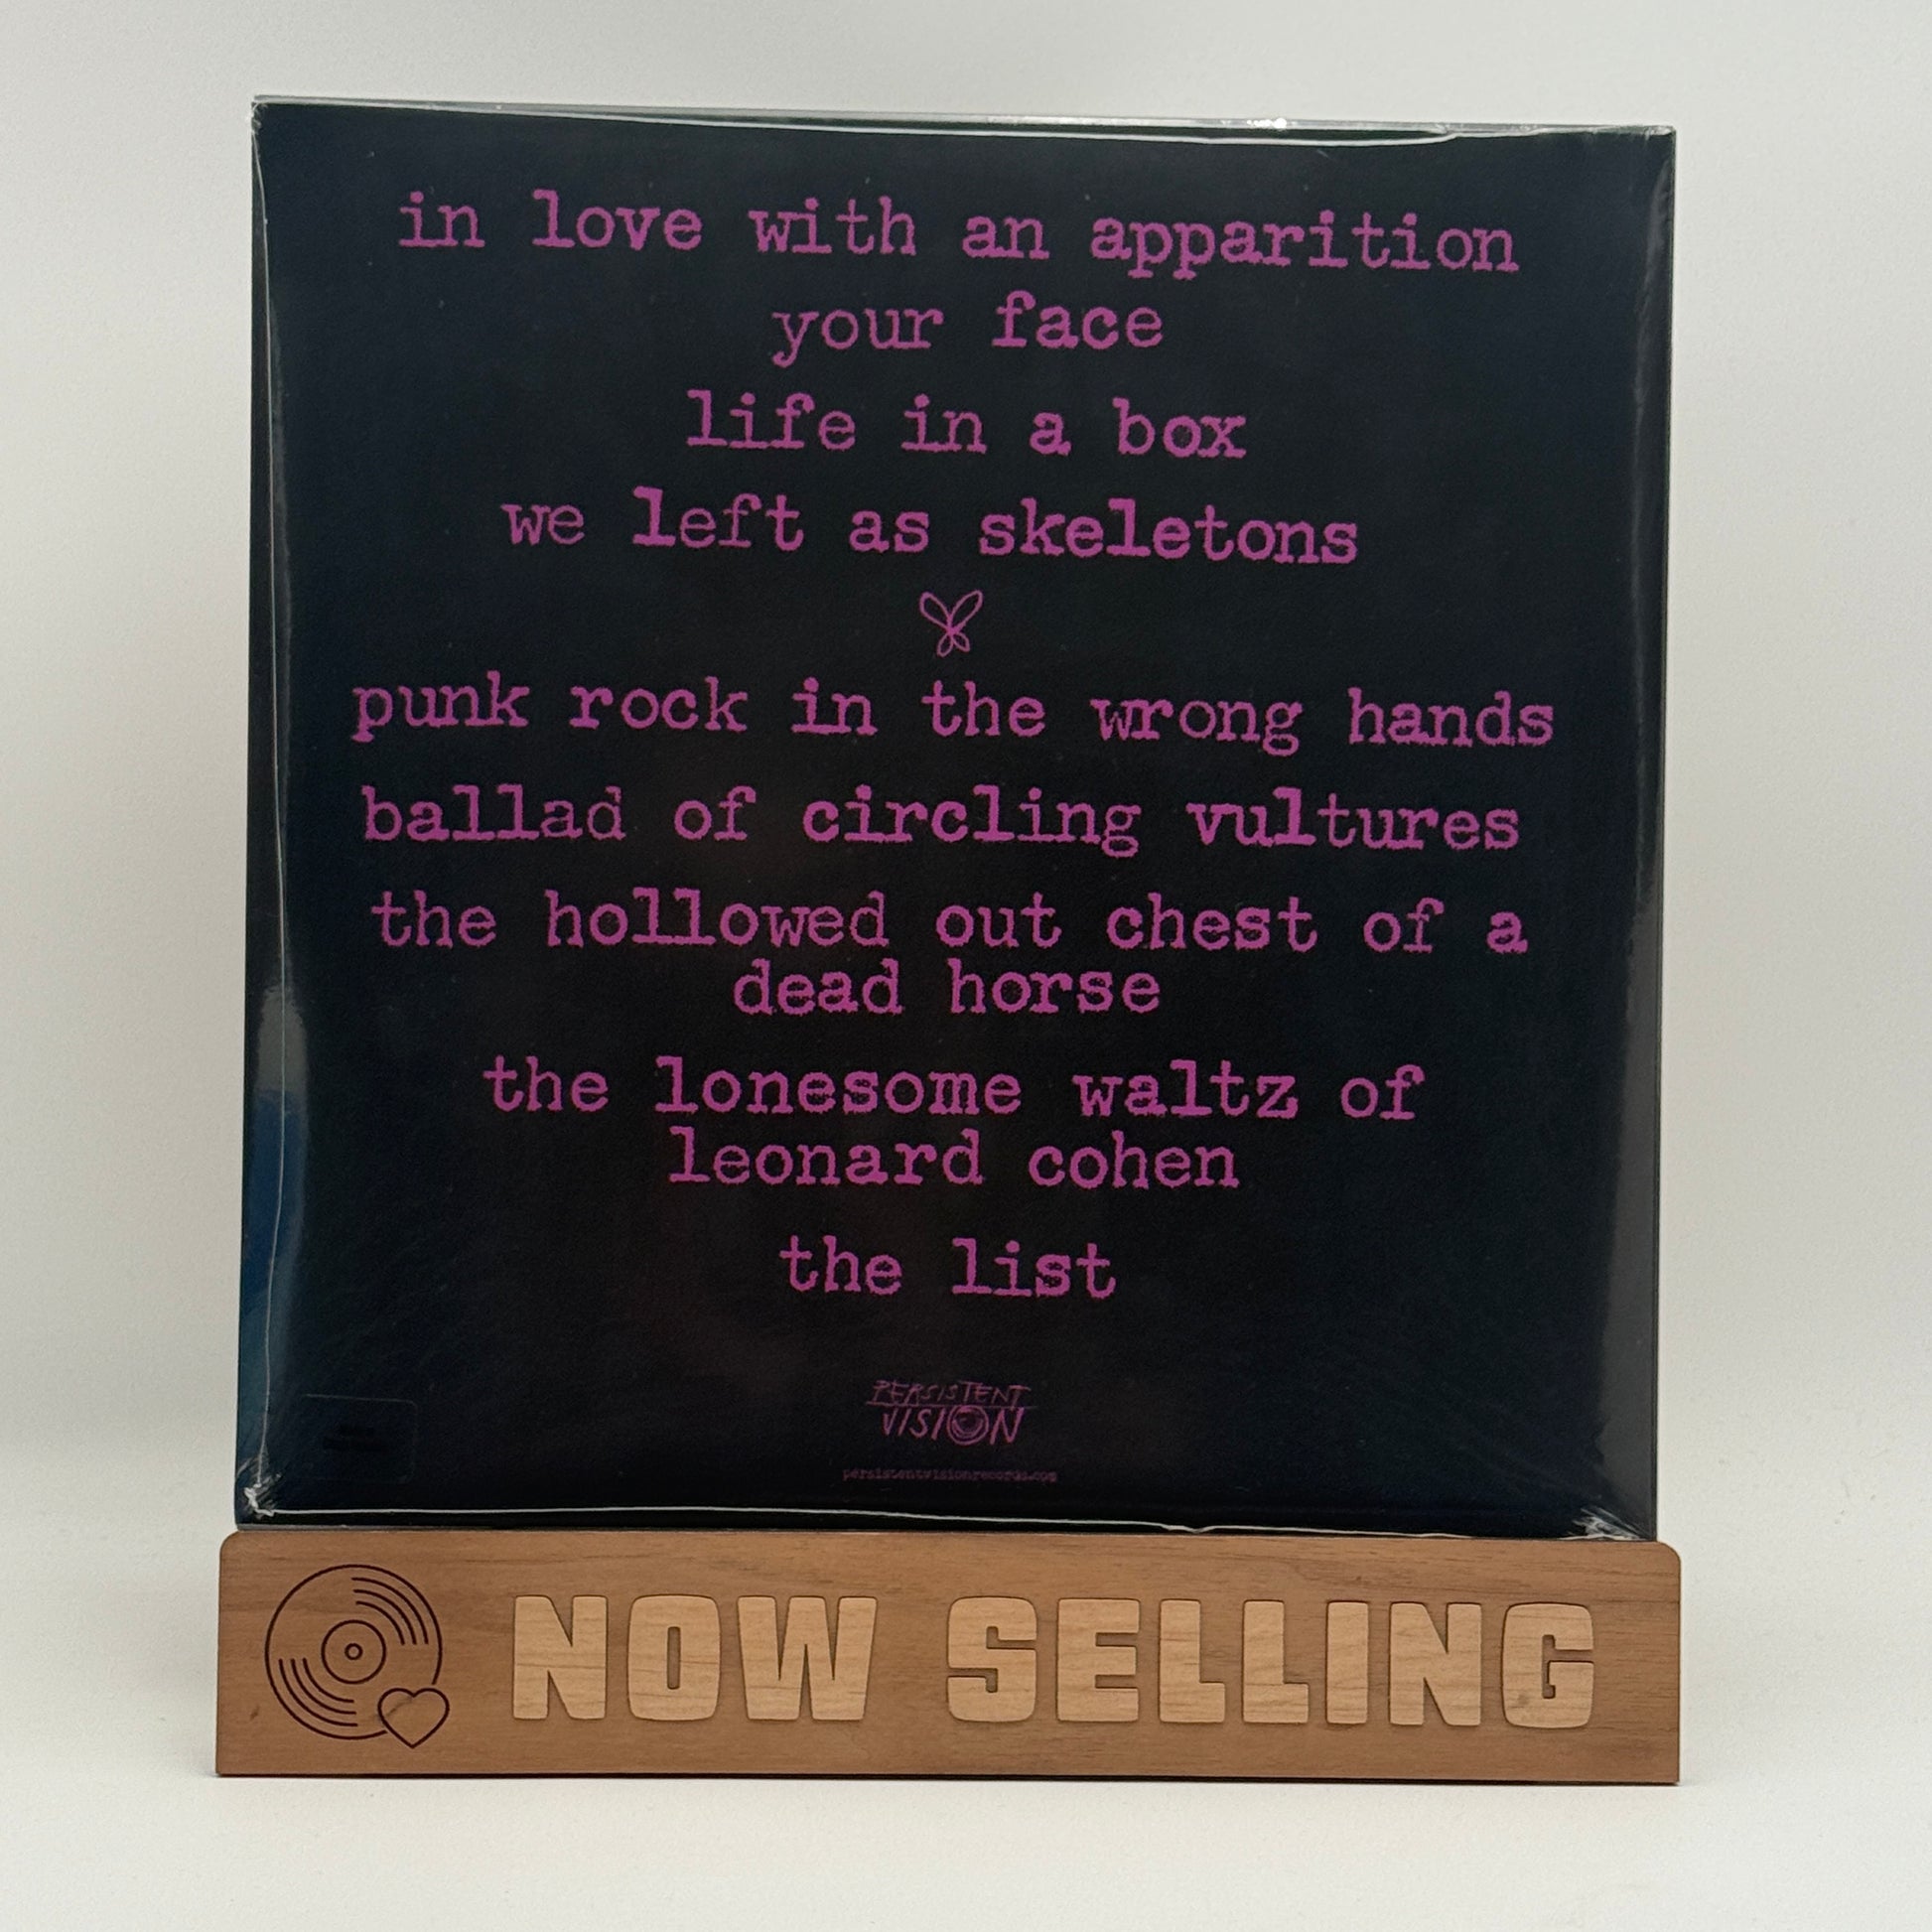 in love with an apparition
your face
life in a box
we left as skeletons
punk rock in the wrong hands
ballad of circling vultures
the hollowed out chest of a
dead horse
the lonesome waltz of
leonard cohen
the list
PERSISTENT
VISION
persistentvisionrecords.com
NOW SELLING